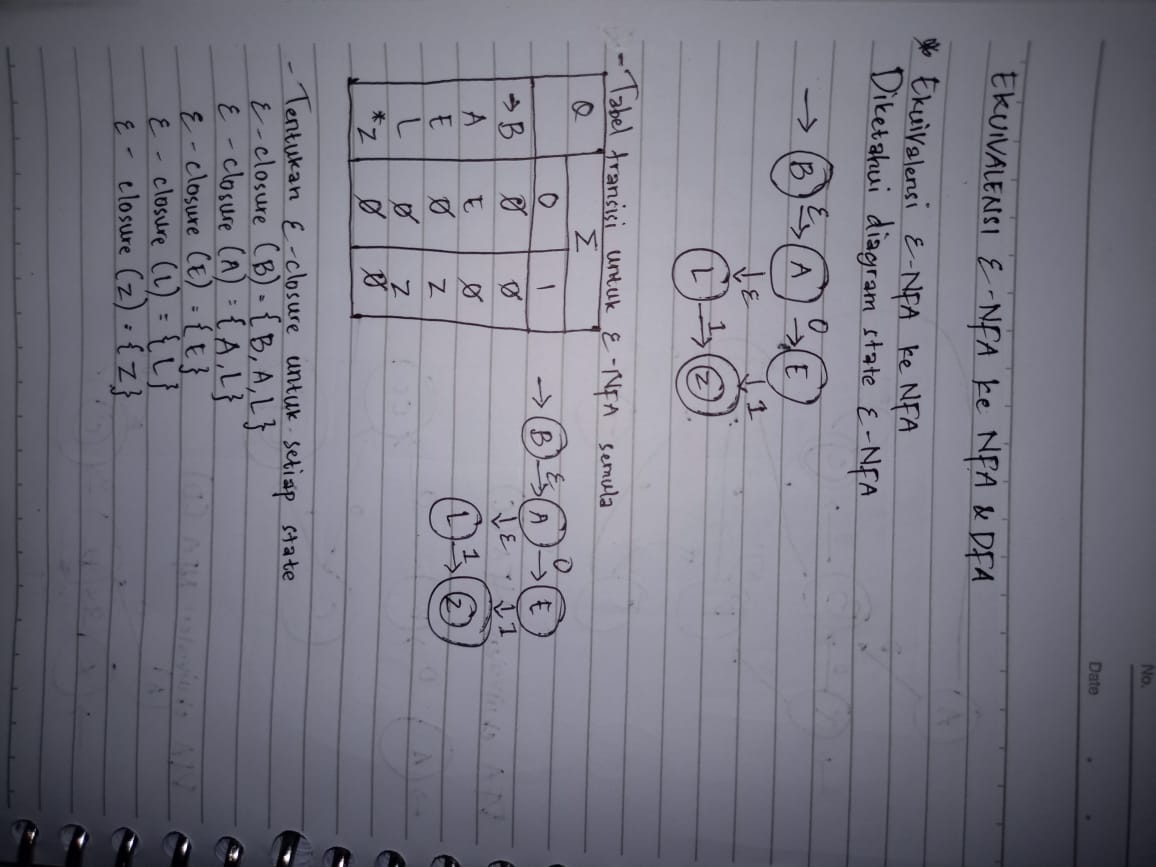 No.
Date
EKUIVALENSI ε-NFA ke NFA & DFA
* Ekuivalensi ε-NFA ke NFA
Diketahui diagram state ε-NFA
→ B ε→ A 0→ E
↓ε ↓1
L 1→ Z
- Tabel transisi untuk ε-NFA semula
Q Σ
0 1
→B ∅ ∅
A E ∅
E ∅ Z
L ∅ Z
*Z ∅ ∅
→ B ε→ A 0→ E
↓ε ↓1
L 1→ Z
- Tentukan ε-closure untuk setiap state
ε-closure (B) = {B, A, L}
ε-closure (A) = {A, L}
ε-closure (E) = {E}
ε-closure (L) = {L}
ε-closure (Z) = {Z}